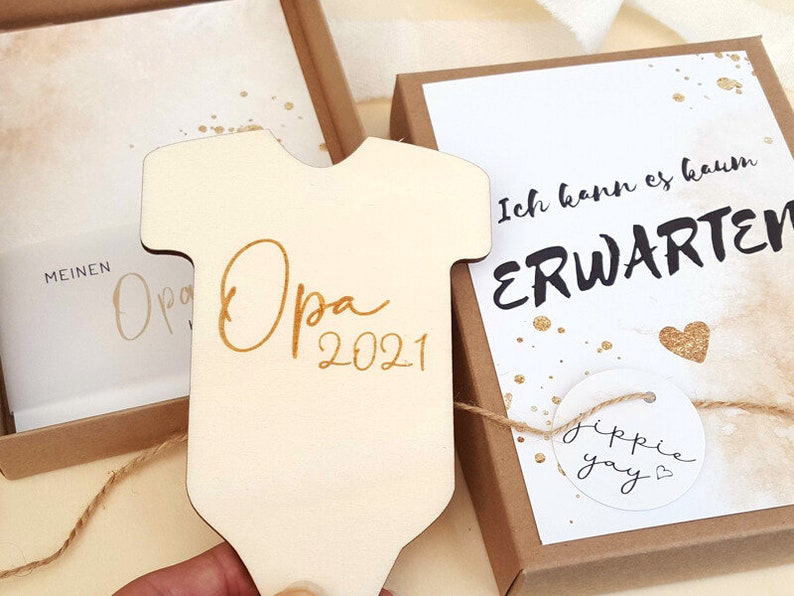 MEINEN
Opa
Opa
2021
Ich kann es kaum
ERWARTEN
jippie
yay